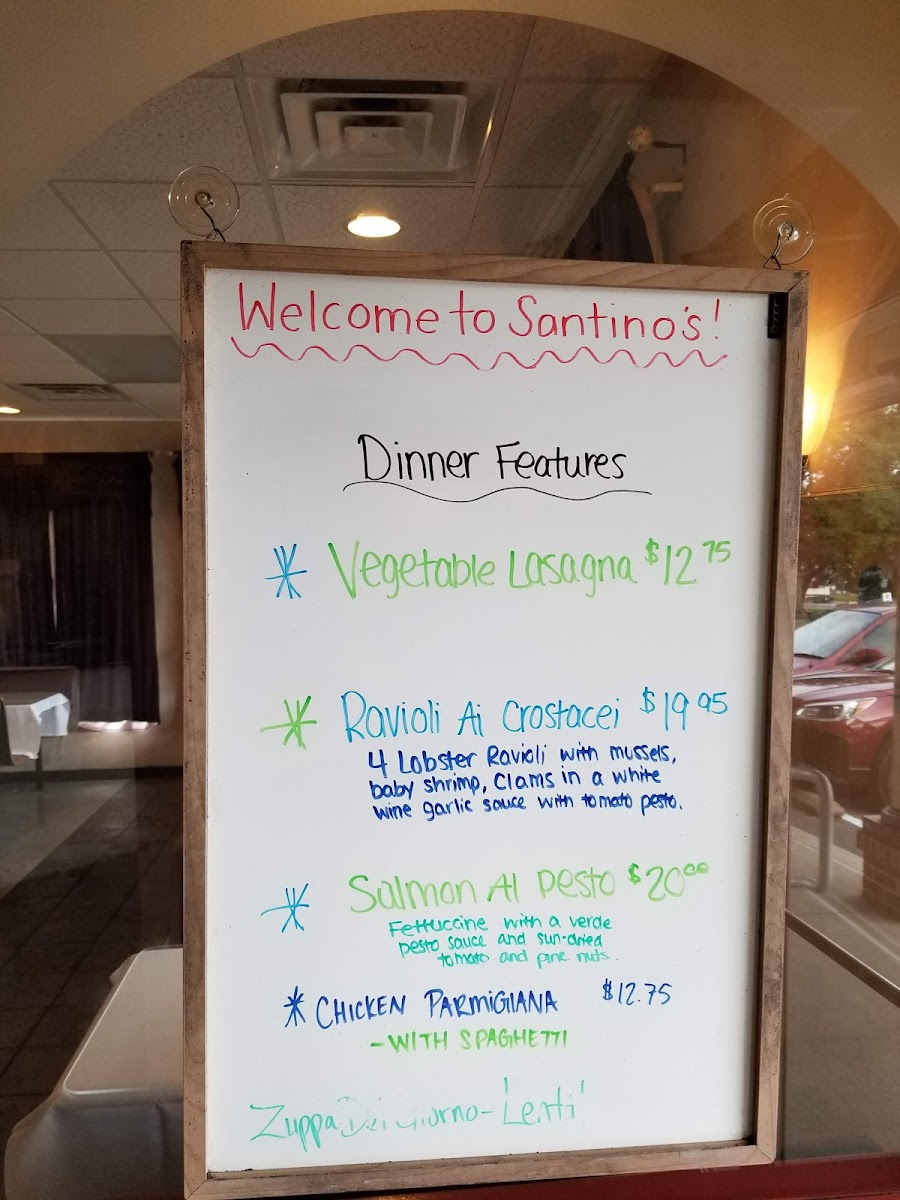 Welcome to Santino's!
Dinner Features
Vegetable Lasagna $12 75
Ravioli Ai Crostacei $19 95
4 Lobster Ravioli with mussels,
baby shrimp, Clams in a white
wine garlic sauce with tomato pesto.
Salmon Al Pesto $20 00
Fettuccine with a verde
pesto sauce and sun-dried
tomato and pine nuts.
* CHICKEN PARMIGIANA $12.75
- WITH SPAGHETTI
Zuppa Del Giorno - 'Lenti'